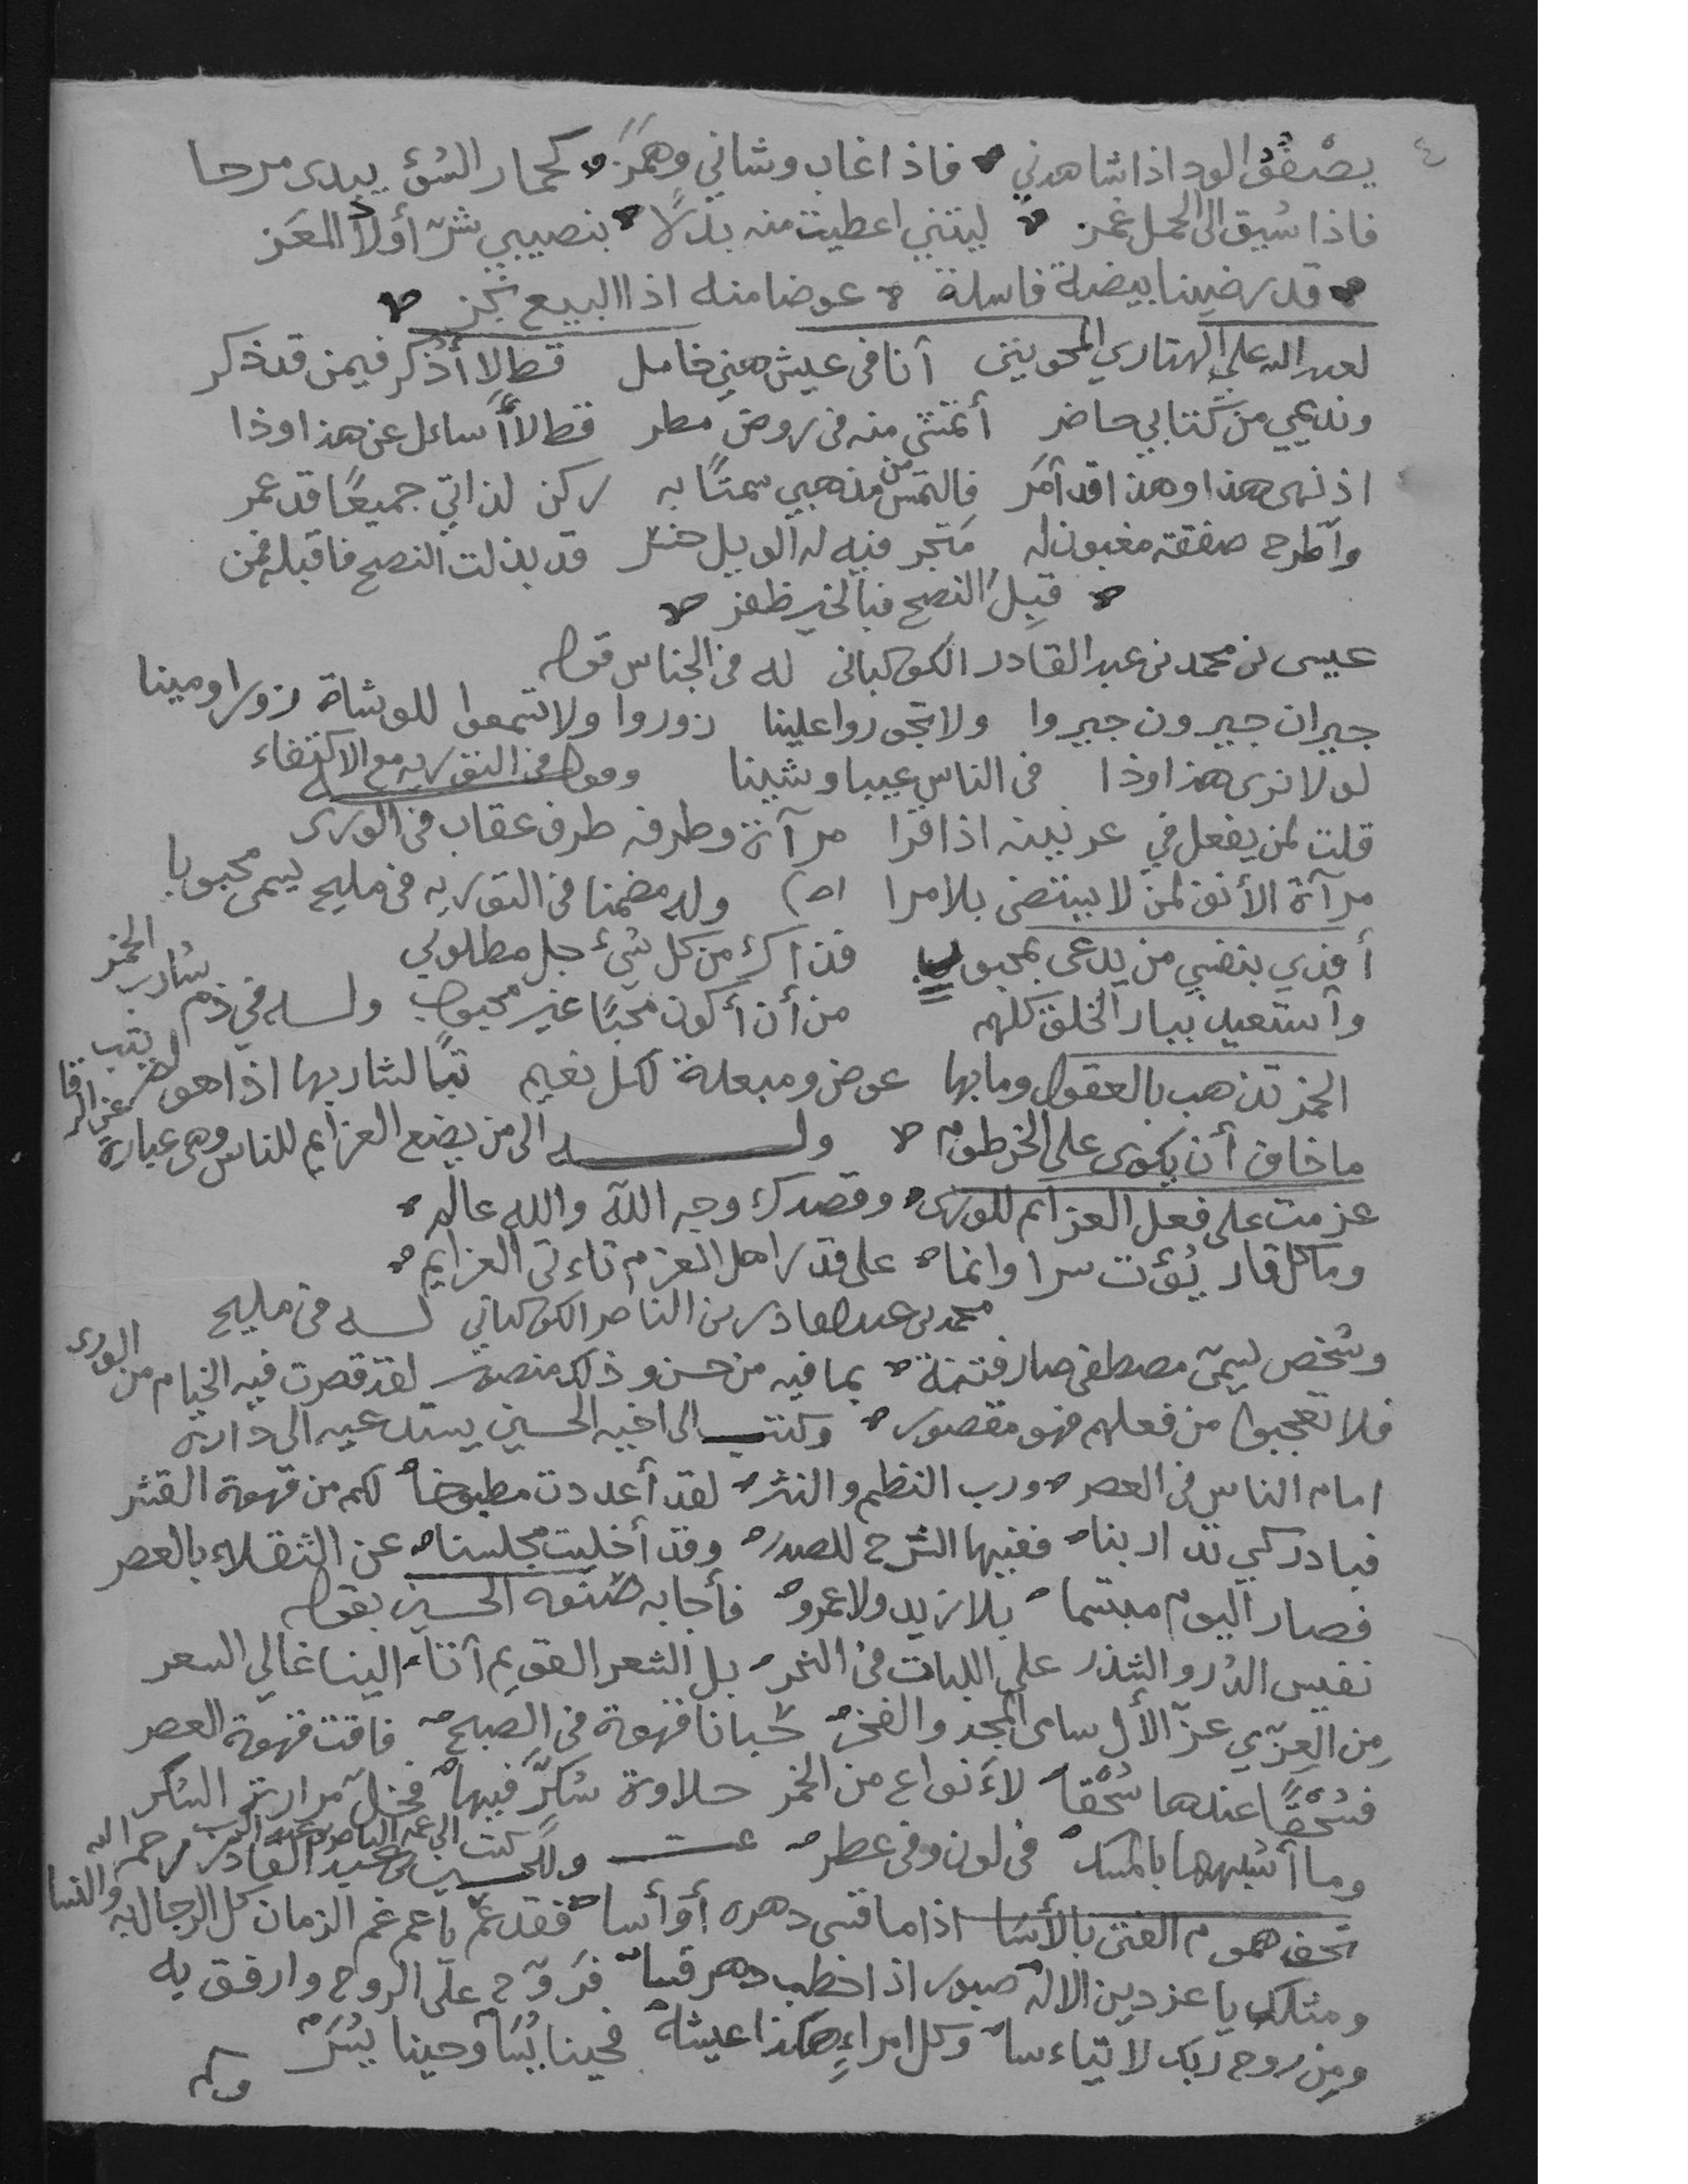 ٤
يصْفُقُ الود اذا شاهدني فاذا غاب وشاني وهمَزَ كحمار السُّؤ يبدى مرحا
فاذا سُيق الى الحمل غمز ليتني اعطيت منه بدلًا بنصيبي شرّ أولاد المعَز
قد رضينا بيضة فاسدة عوضا منه اذا البيع نجز
لعبد الله علي الهتاري المحويتى أنا فى عيش هني خامل قط لا أذكر فيمن قد ذكر
ونديمي من كتابي حاضر أتمشى منه فى روض مطر قط لا أُسائل عن هذا وذا
اذ نهى هذا وهذا قد أمَر فالتمس من مذهبي سمتًا به ركن لذاتي جميعًا قد عمر
وٱطرح صفقة مغبون له مَتجر فيه له الويل خسر قد بذلت النصح فاقبله فمن
قبِل النصح فبالخير ظفر
عيسى بن محمد بن عبد القادر الكوكبانى له فى الجناس قوله
جيران جيرون جيروا ولا تجوروا علينا زوروا ولا تسمعوا للوشاة زورا ومينا
لولا نرى هذا وذا فى الناس عيبا وشينا وقوله فى التوريه مع الاكتفاء
قلت لمن يفعل في عرنينه اذا قرا مرآة وطرفه طرف عقاب فى الورى
مرآة الأنف لمن لا يبتضى بلا مرا اه وله مضمنا فى التوريه فى مليح يسمى محبوبا
أفدي بنفسي من يدعى بمحبوب فذاك من كل شيء جل مطلوبي
وأستعيذ ببار الخلق كلهم من أن أكون محبًا غير محبوب ولـه في ذم شارب الخمر
الخمر تذهب بالعقول وما بها عوض ومبعدة لكل نعيم تبًا لشاربها اذا هو لم يتب
ما خاف أن يكوى على الخرطوم ولـــه الى من يضع العزايم للناس وهى عبارة عن الرقا
عزمت على فعل العزائم للورى وقصدك وجه الله والله عالم
وما كل قار يُؤت سرا وانما على قدر اهل العزم تاءتى العزايم
محمد بن عبد القادر بن الناصر الكوكبانى لــه فى مليح
وشخص يسمى مصطفى صار فتنة بما فيه من حسن وذلك منصور لقد قصرت فيه الخيام من الورى
فلا تعجبوا من فعلهم فهو مقصور وكتب الى اخيه الحسين يستدعيه الى داره
امام الناس فى العصر ورب النظم والنثر لقد أعددت مطبوخا لكم من قهوة القشر
فبادر كي تدار بنا ففيها الشرح للصدر وقد أخليت مجلسنا عن الثقلاء بالعصر
فصار اليوم مبتسما بلا زيد ولا عمرو فأجابه صنوه الحسين بقوله
نفيس الدُر والشذر على اللبات فى النحر بل الشعر القويم أتا الينا غالي السعر
مِن العِزّي عزّ الأل سامى المجد والفخر حَبانا قهوة فى الصبح فاقت قهوة العصر
فسُحْقًا عندها سُحْقا لاَنواع من الخمر حلاوة سُكرٍّ فيها فخل مرارة السُكر
وما أشبهها بالمسك فى لون وفى عطر تمت وللحسين بن عبد القادر رحمه الله
تخف هموم الفتى بالأسَا اذا ما قسى دهره أوأسا فقد عمّ يا عم غم الزمان كل الرجال به والنسا
ومثلك يا عز دين الالٰه صبور اذا خطب دهر قسا فرَوّح علَى الروح وارفق به
ومِن روح ربك لا تياءسا وكل امراءٍ هكذا عيشه فحينا بُسَا وحينا يُسَرّ